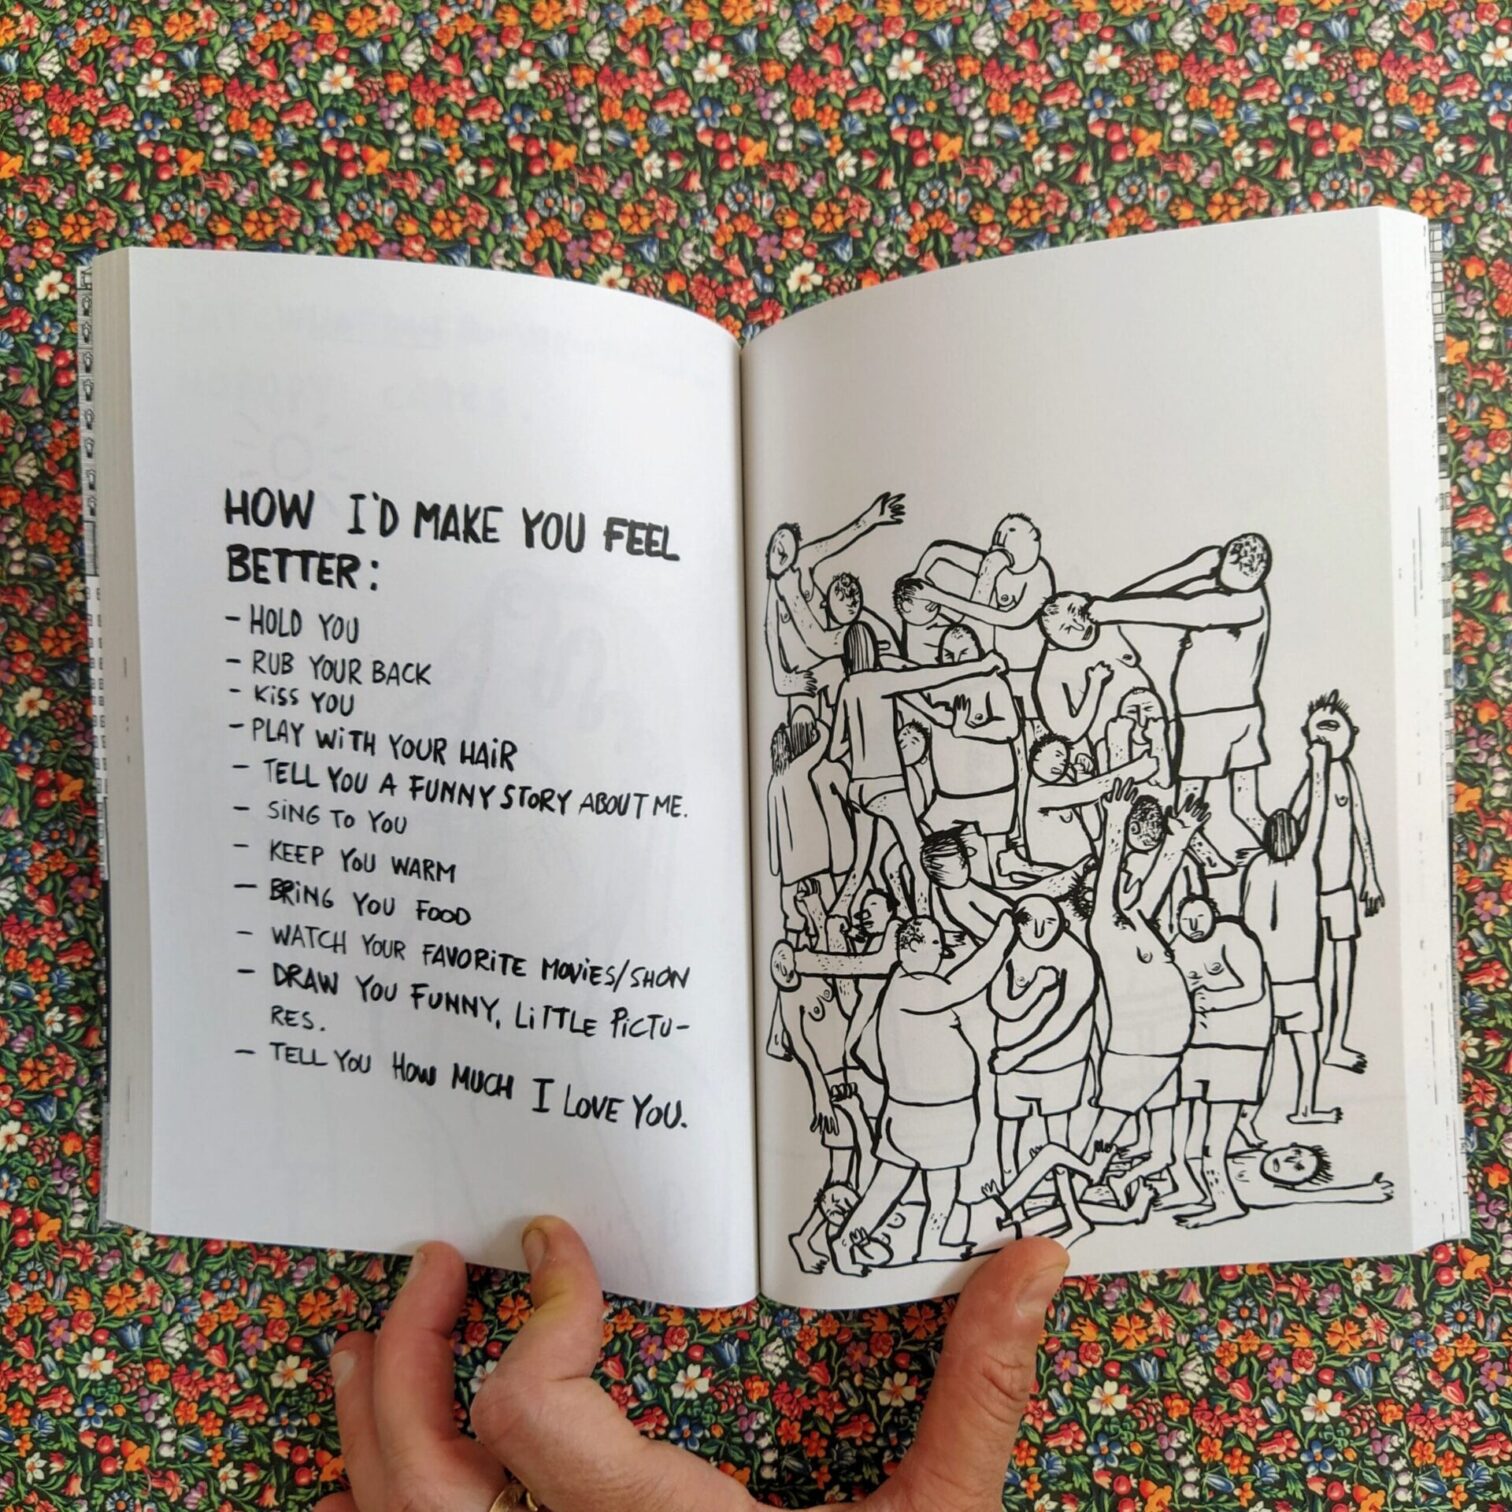 HOW I'D MAKE YOU FEEL
BETTER:
- HOLD YOU
- RUB YOUR BACK
- KiSS YOU
- PLAY WiTH YOUR HAiR
- TELL YOU A FUNNY STORY ABOUT ME.
- SiNG TO YOU
- KEEP YOU WARM
- BRiNG YOU FOOD
- WATCH YOUR FAVORiTE MOViES/SHOW
- DRAW YOU FUNNY, LiTTLE PiCTU-
RES.
- TELL YOU HOW MUCH I LOVE YOU.